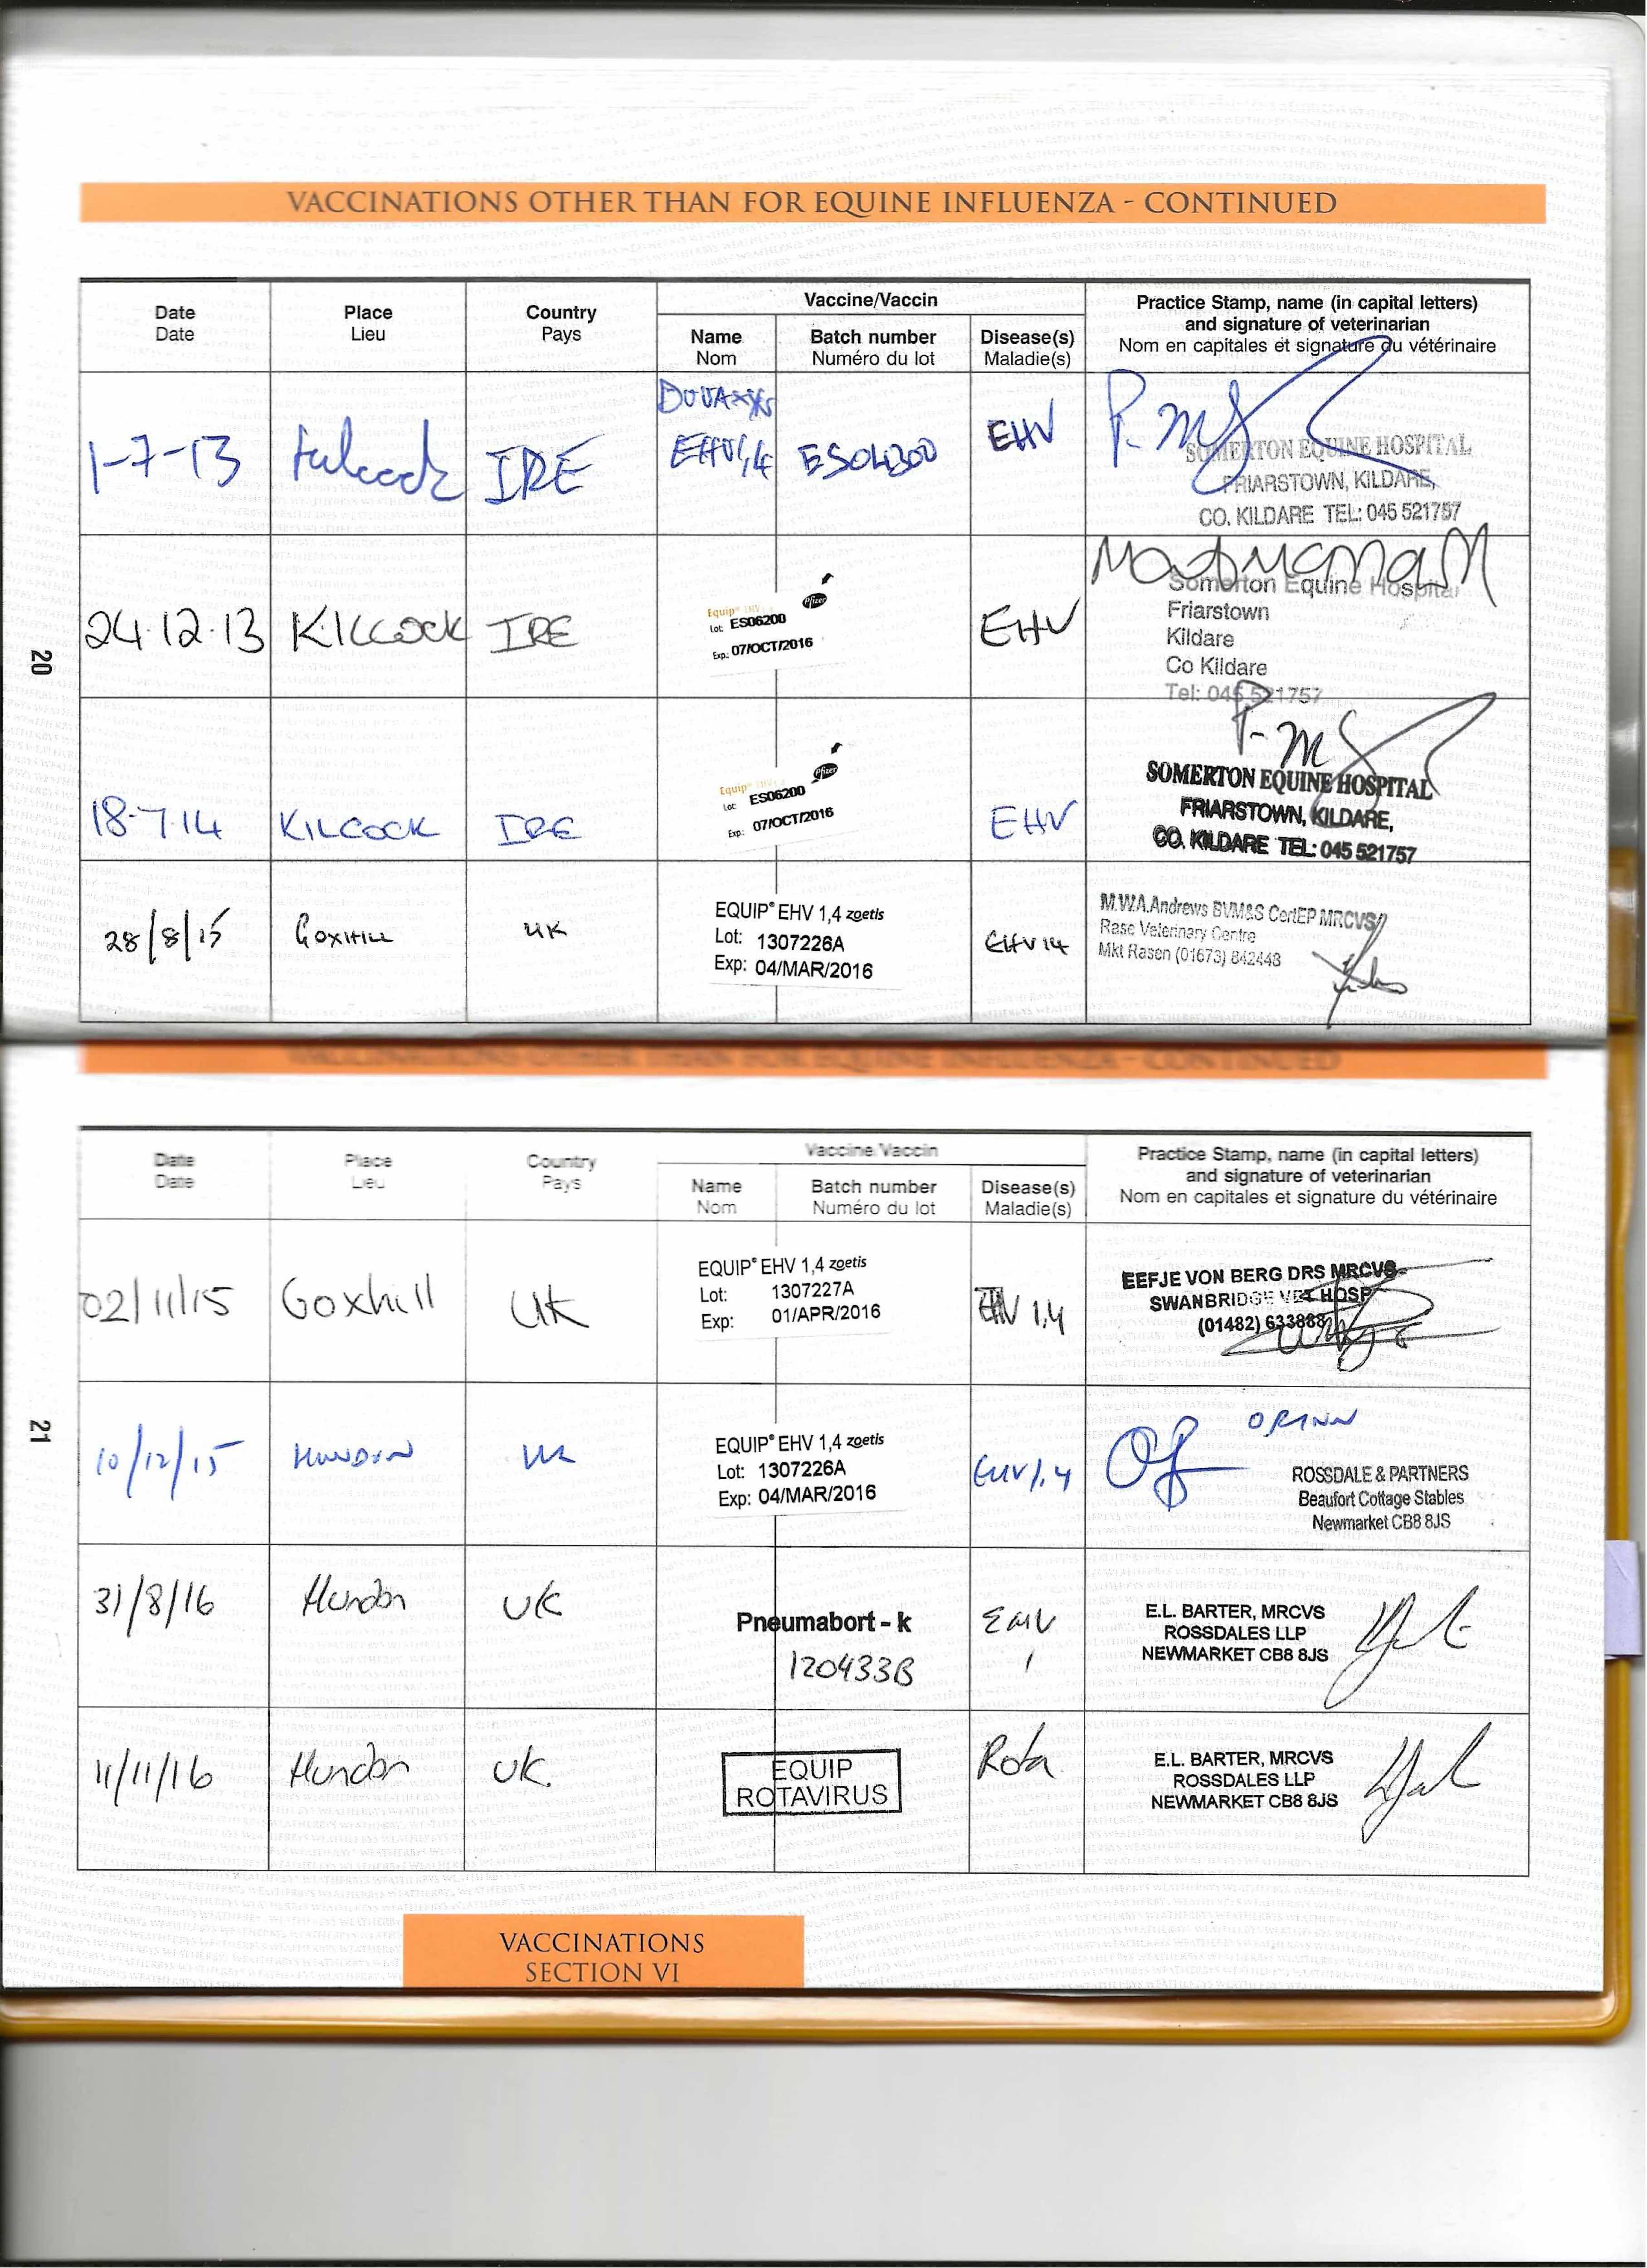 VACCINATIONS OTHER THAN FOR EQUINE INFLUENZA - CONTINUED
Date Place Country Vaccine/Vaccin Practice Stamp, name (in capital letters)
Date Lieu Pays and signature of veterinarian
Name Batch number Disease(s) Nom en capitales et signature du vétérinaire
Nom Numéro du lot Maladie(s)
1-7-13 IRE EHV1,4 EHV P.
SOMERTON EQUINE HOSPITAL
FRIARSTOWN, KILDARE,
CO. KILDARE TEL: 045 521757
24.12.13 KILCOCK IRE Equip EHV Pfizer EHV
Lot: ES06200
Exp.: 07/OCT/2016
Somerton Equine Hospital
Friarstown
Kildare
Co Kildare
Tel: 045 521757
20
18-7-14 KILCOCK IRE Equip Pfizer EHV
Lot: ES06200
Exp.: 07/OCT/2016
SOMERTON EQUINE HOSPITAL
FRIARSTOWN, KILDARE,
CO. KILDARE TEL: 045 521757
28/8/15 GOXHILL UK EQUIP® EHV 1,4 zoetis EHV 14
Lot: 1307226A
Exp: 04/MAR/2016
M.W.A.Andrews BVM&S CertEP MRCVS
Rase Veterinary Centre
Mkt Rasen (01673) 842448
VACCINATIONS OTHER THAN FOR EQUINE INFLUENZA - CONTINUED
Date Place Country Vaccine/Vaccin Practice Stamp, name (in capital letters)
Date Lieu Pays and signature of veterinarian
Name Batch number Disease(s) Nom en capitales et signature du vétérinaire
Nom Numéro du lot Maladie(s)
02/11/15 Goxhill UK EQUIP® EHV 1,4 zoetis EHV 1,4
Lot: 1307227A
Exp: 01/APR/2016
EEFJE VON BERG DRS MRCVS
SWANBRIDGE VET HOSP
(01482) 633888
21
10/12/15 HUNDON UK EQUIP® EHV 1,4 zoetis EHV 1,4
Lot: 1307226A
Exp: 04/MAR/2016
ROSSDALE & PARTNERS
Beaufort Cottage Stables
Newmarket CB8 8JS
31/8/16 Hundon UK Pneumabort - k EHV
120433B 1
E.L. BARTER, MRCVS
ROSSDALES LLP
NEWMARKET CB8 8JS
11/11/16 Hundon UK. EQUIP Rota
ROTAVIRUS
E.L. BARTER, MRCVS
ROSSDALES LLP
NEWMARKET CB8 8JS
VACCINATIONS
SECTION VI